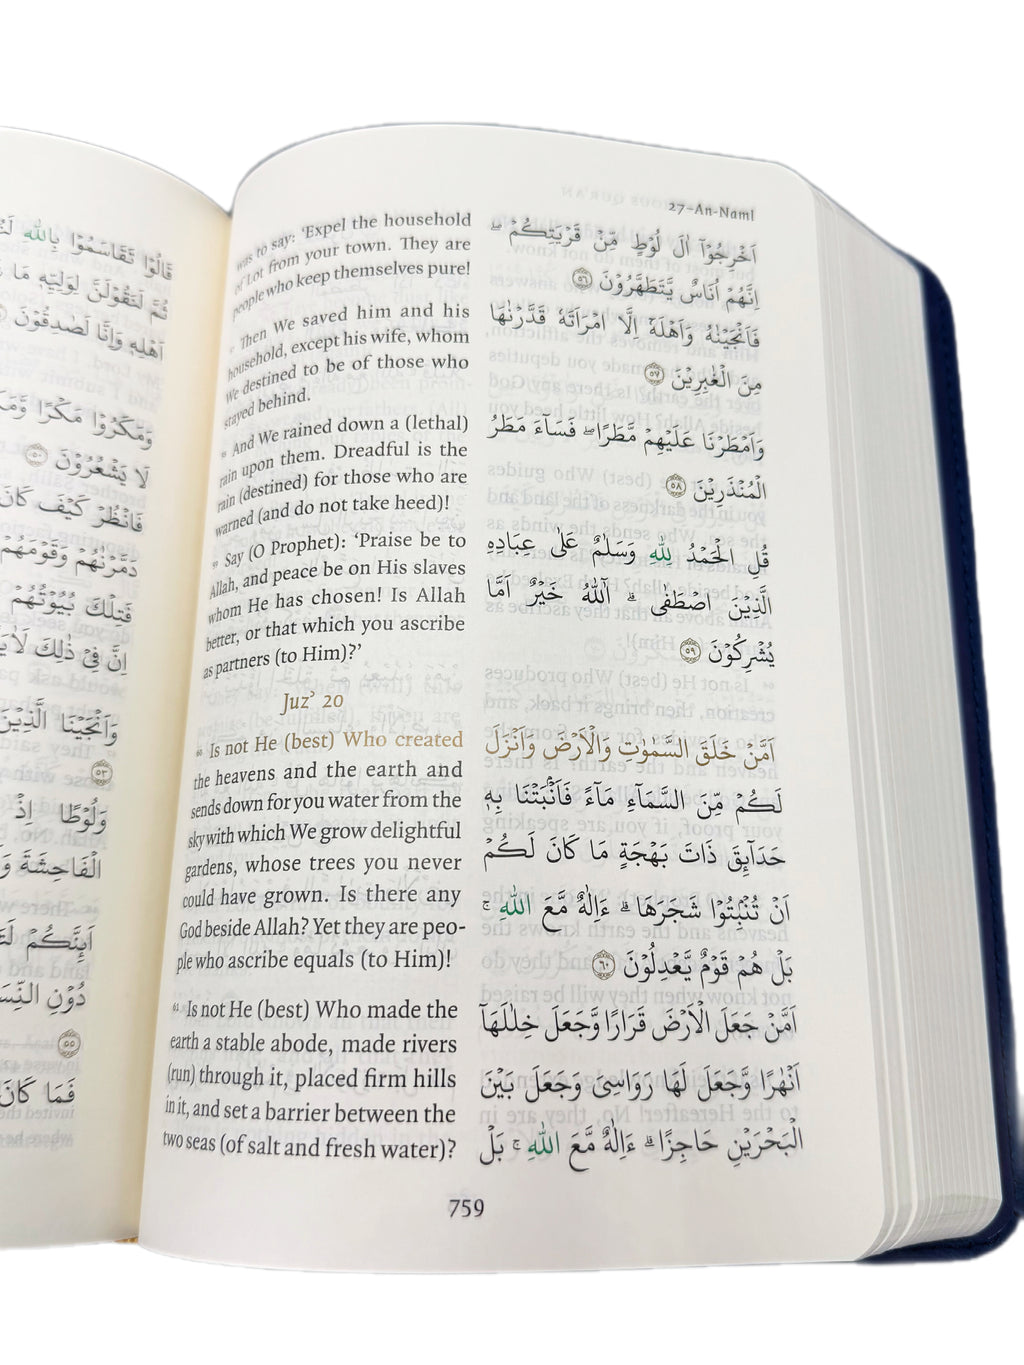 27-An-Naml
was to say: ‘Expel the household
of Lot from your town. They are
people who keep themselves pure!
57 Then We saved him and his
household, except his wife, whom
We destined to be of those who
stayed behind.
58 And We rained down a (lethal)
rain upon them. Dreadful is the
rain (destined) for those who are
warned (and do not take heed)!
59 Say (O Prophet): ‘Praise be to
Allah, and peace be on His slaves
whom He has chosen! Is Allah
better, or that which you ascribe
as partners (to Him)?’
Juz’ 20
60 Is not He (best) Who created
the heavens and the earth and
sends down for you water from the
sky with which We grow delightful
gardens, whose trees you never
could have grown. Is there any
God beside Allah? Yet they are peo-
ple who ascribe equals (to Him)!
61 Is not He (best) Who made the
earth a stable abode, made rivers
(run) through it, placed firm hills
in it, and set a barrier between the
two seas (of salt and fresh water)?
اَخْرِجُوْٓا اٰلَ لُوْطٍ مِّنْ قَرْيَتِكُمْ ۚ
اِنَّهُمْ اُنَاسٌ يَّتَطَهَّرُوْنَ ۝٥٦
فَاَنْجَيْنٰهُ وَاَهْلَهٗٓ اِلَّا امْرَاَتَهٗ قَدَّرْنٰهَا
مِنَ الْغٰبِرِيْنَ ۝٥٧
وَاَمْطَرْنَا عَلَيْهِمْ مَّطَرًا ۚ فَسَآءَ مَطَرُ
الْمُنْذَرِيْنَ ۝٥٨
قُلِ الْحَمْدُ لِلّٰهِ وَسَلٰمٌ عَلٰى عِبَادِهِ
الَّذِيْنَ اصْطَفٰى ۗ آٰللّٰهُ خَيْرٌ اَمَّا
يُشْرِكُوْنَ ۝٥٩
اَمَّنْ خَلَقَ السَّمٰوٰتِ وَالْاَرْضَ وَاَنْزَلَ
لَكُمْ مِّنَ السَّمَآءِ مَآءً فَاَنْۢبَتْنَا بِهٖ
حَدَآئِقَ ذَاتَ بَهْجَةٍ مَا كَانَ لَكُمْ
اَنْ تُنْۢبِتُوْا شَجَرَهَا ۗ ءَاِلٰهٌ مَّعَ اللّٰهِ ۚ
بَلْ هُمْ قَوْمٌ يَّعْدِلُوْنَ ۝٦٠
اَمَّنْ جَعَلَ الْاَرْضَ قَرَارًا وَّجَعَلَ خِلٰلَهَآ
اَنْهٰرًا وَّجَعَلَ لَهَا رَوَاسِىَ وَجَعَلَ بَيْنَ
الْبَحْرَيْنِ حَاجِزًا ۗ ءَاِلٰهٌ مَّعَ اللّٰهِ ۚ بَلْ
759
قَالُوْا تَقَاسَمُوْا بِاللّٰهِ
ثُمَّ لَنَقُوْلَنَّ لِوَلِيِّهٖ مَا
اَهْلِهٖ وَاِنَّا لَصٰدِقُوْنَ
وَمَكَرُوْا مَكْرًا
لَا يَشْعُرُوْنَ ۝٥٠
فَانْظُرْ كَيْفَ كَانَ
دَمَّرْنٰهُمْ وَقَوْمَهُمْ
فَتِلْكَ بُيُوْتُهُمْ
اِنَّ فِىْ ذٰلِكَ
وَاَنْجَيْنَا الَّذِيْنَ
۝٥٣
وَلُوْطًا اِذْ
الْفَاحِشَةَ
اَئِنَّكُمْ
دُوْنِ
۝٥٥
فَمَا كَانَ